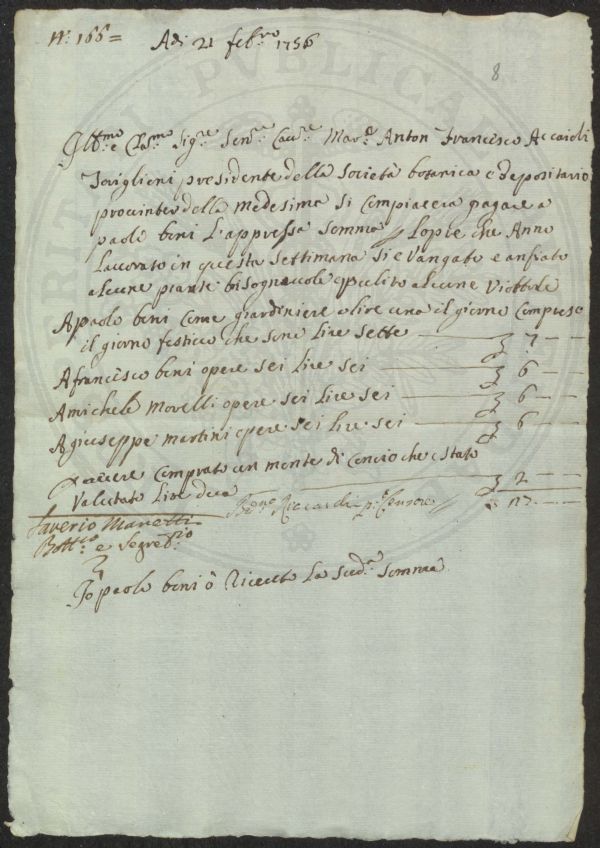 N.° 166 =
Adi 21 feb.ro 1756
8
Ill.mo e Cla.mo Sig.re Sen.re Cav.re Mar.e Anton Francisco Accaioli
Toriglioni presidente della Società botanica e depositario
provinter della medesima si compiacera pagare a
paolo beni L'appressa somma // Lopre che Anno
Lavorato in questa settimana si e vangato e anfiato
alcune piante bisognevole e pulito alcune viottole
A paolo beni come giardiniere a lire una il giorno compreso
il giorno festivo che sono Lire sette — 7 —
A francesco beni opere sei Lire sei — 6 —
A michele morelli opere sei Lire sei — 6 —
A giuseppe martini opere sei Lire sei — 6 —
avere comprato un monte di concio che e stato
valutato Lire dua — 2 —
Saverio Manetti
Riccardi p.° Censore // — 27 —
Bott.co e Segret.rio
Io paolo beni ò Riceuto La sud.a somma